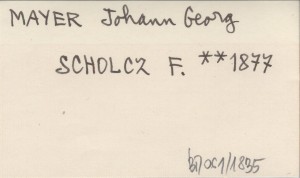 MAYER Johann Georg
SCHOLCZ F. **1877
/1835